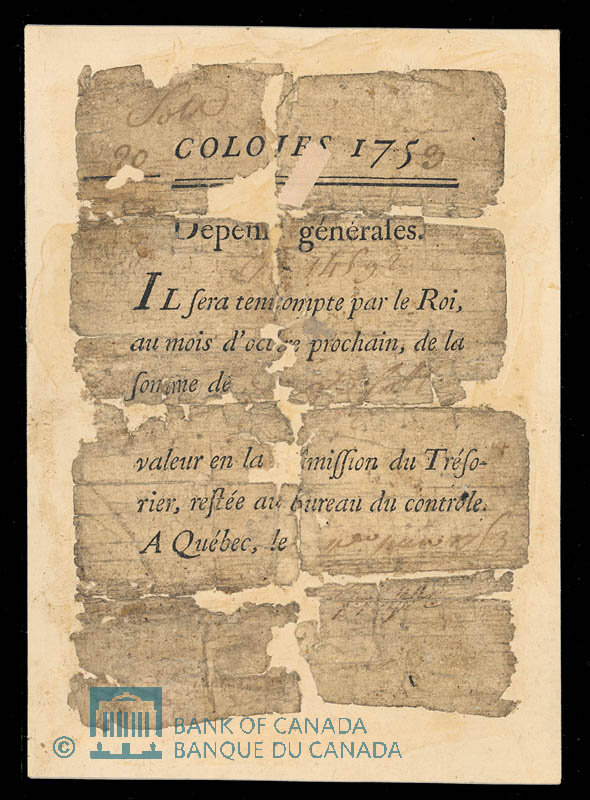 Sols
20 COLONIES 1753
Depenses générales.
N° 14532
IL sera tenu compte par le Roi,
au mois d'octobre prochain, de la
somme de
valeur en la soumission du Tréso-
rier, restée au bureau du contrôle.
A Québec, le
© BANK OF CANADA
BANQUE DU CANADA